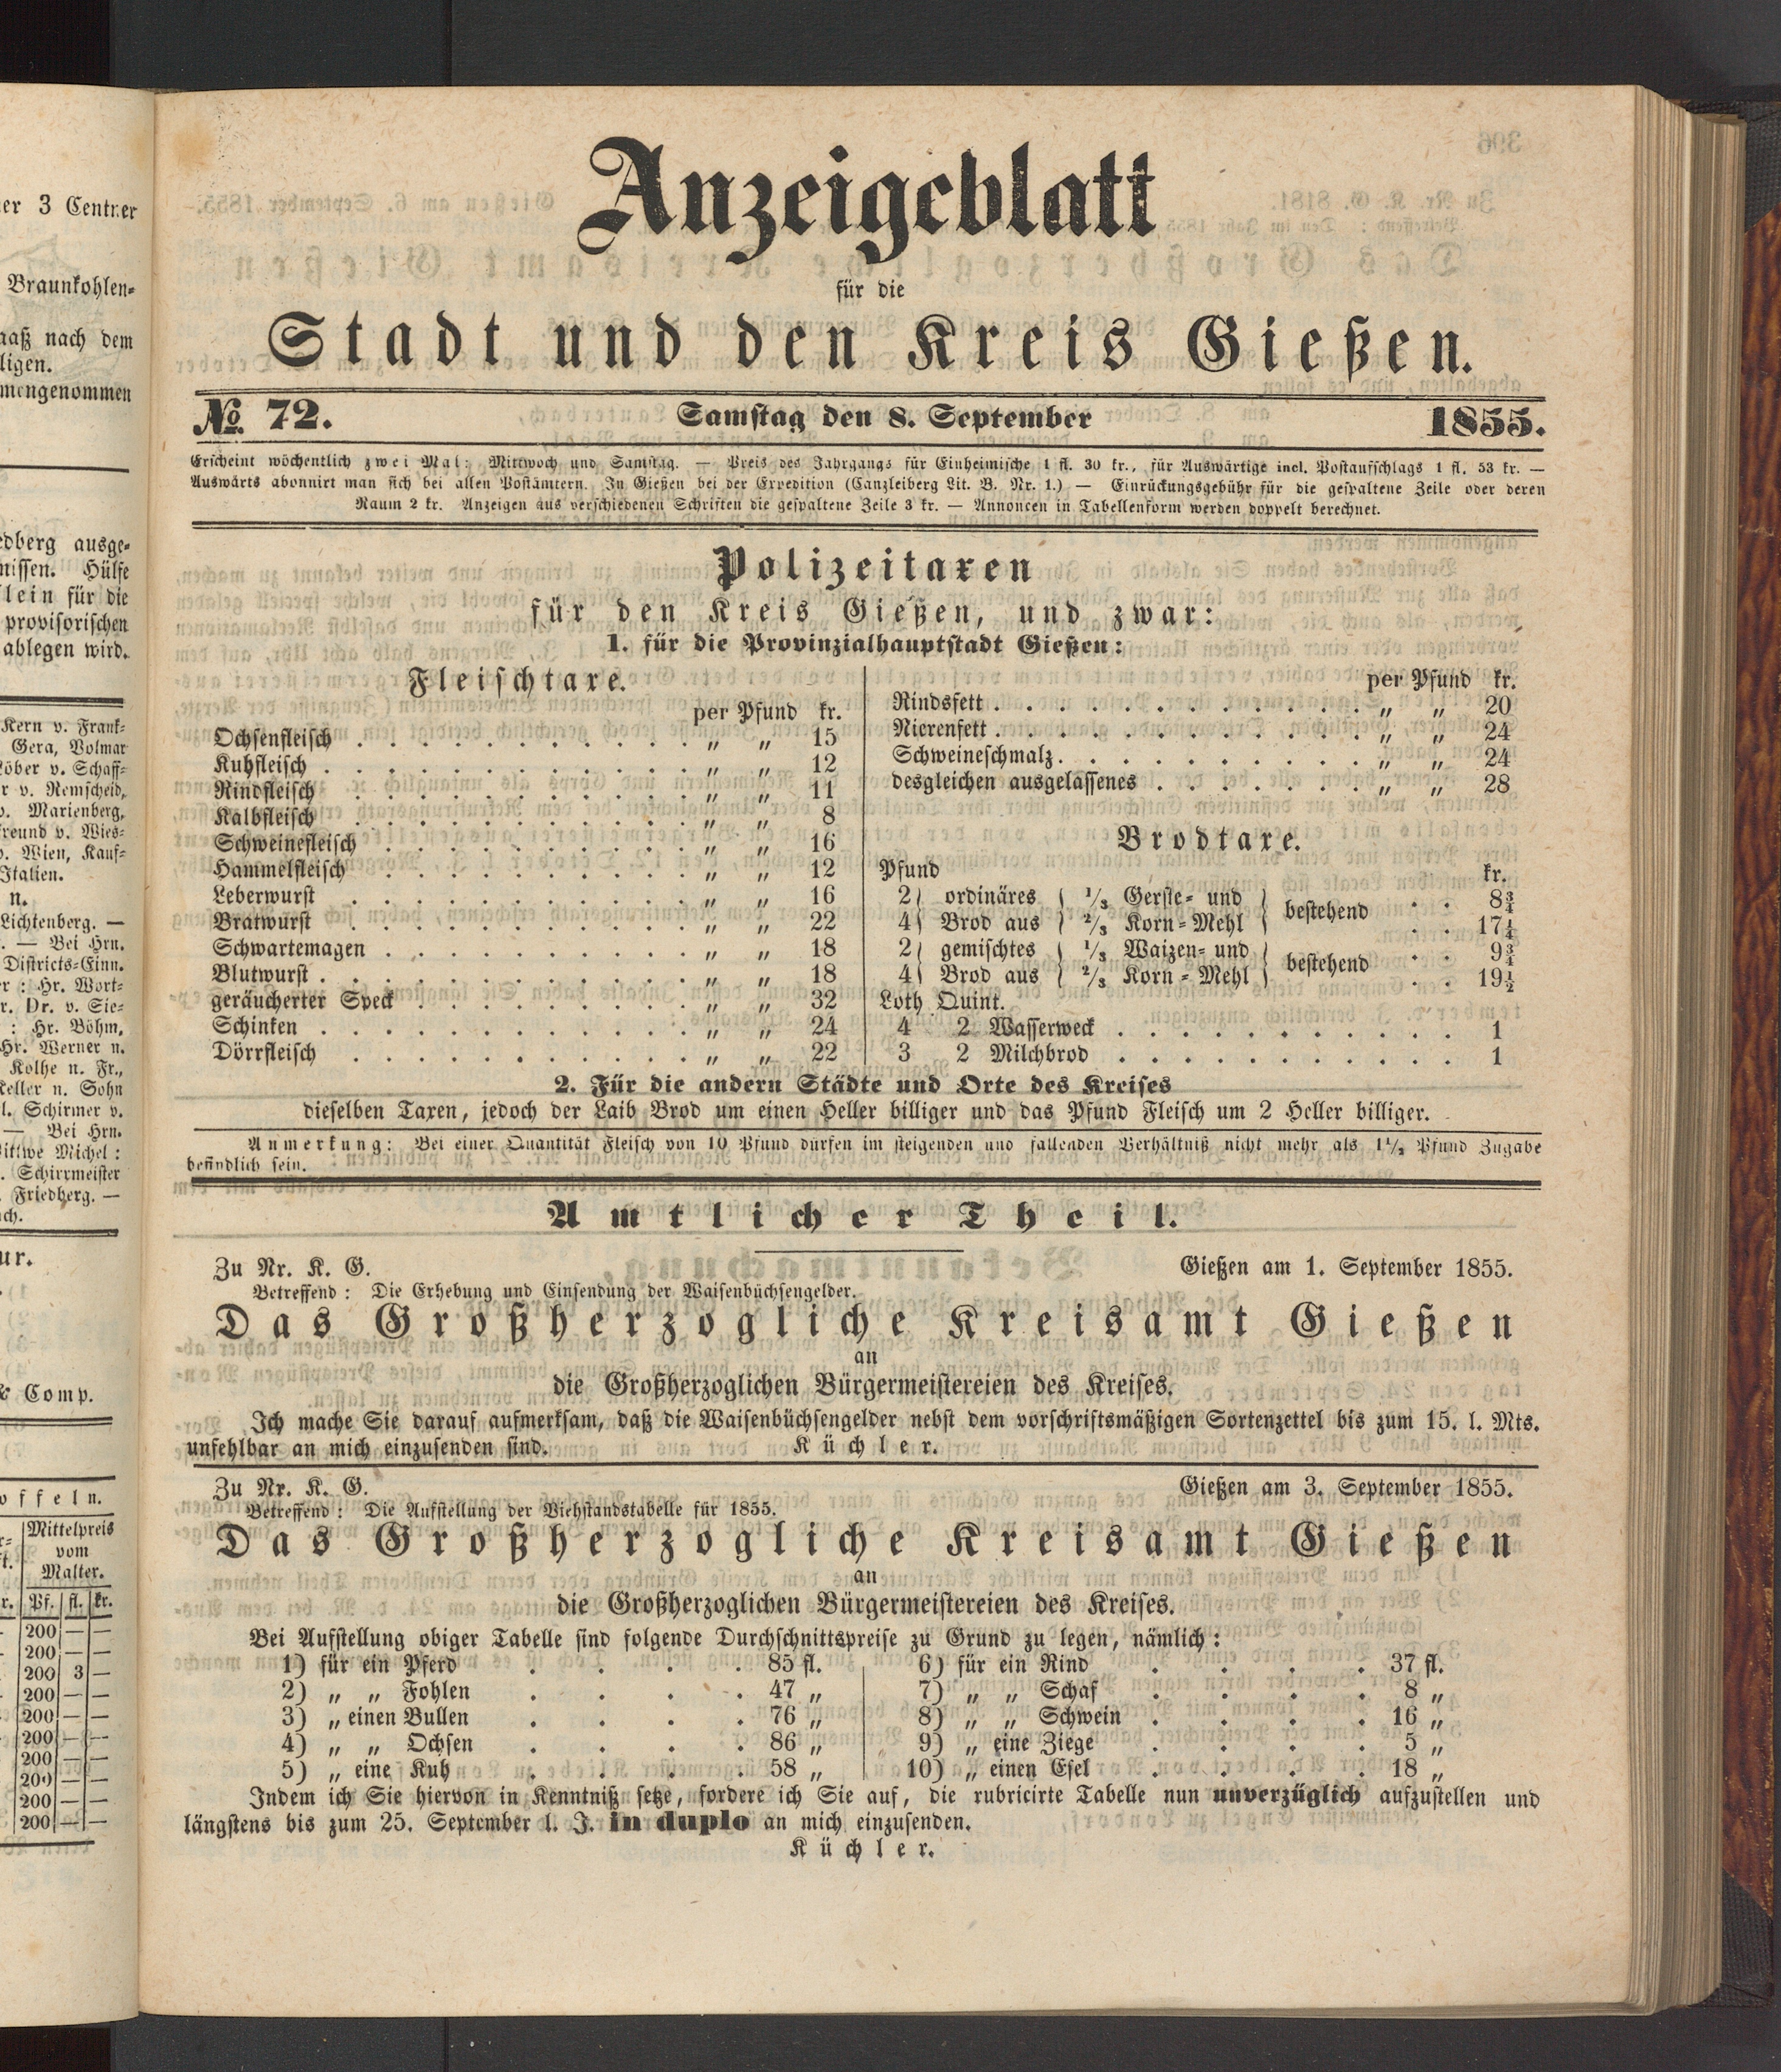 Anzeigeblatt
für die
Stadt und den Kreis Gießen.
No. 72. Samstag den 8. September 1855.
Erscheint wöchentlich zwei Mal: Mittwoch und Samstag. — Preis des Jahrgangs für Einheimische 1 fl. 30 kr., für Auswärtige incl. Postaufschlags 1 fl. 53 kr. —
Auswärts abonnirt man sich bei allen Postämtern. In Gießen bei der Expedition (Canzleiberg Lit. B. Nr. 1.) — Einrückungsgebühr für die gespaltene Zeile oder deren
Raum 2 kr. Anzeigen aus verschiedenen Schriften die gespaltene Zeile 3 kr. — Annoncen in Tabellenform werden doppelt berechnet.
Polizeitaxen
für den Kreis Gießen, und zwar:
1. für die Provinzialhauptstadt Gießen:
Fleischtaxe.
per Pfund kr.
Ochsenfleisch . . . „ „ 15
Kuhfleisch . . . „ „ 12
Rindfleisch . . . „ „ 11
Kalbfleisch . . . „ „ 8
Schweinefleisch . . . „ „ 16
Hammelfleisch . . . „ „ 12
Leberwurst . . . „ „ 16
Bratwurst . . . „ „ 22
Schwartemagen . . . „ „ 18
Blutwurst . . . „ „ 18
geräucherter Speck . . . „ „ 32
Schinken . . . „ „ 24
Dörrfleisch . . . „ „ 22
per Pfund kr.
Rindsfett . . . „ „ 20
Nierenfett . . . „ „ 24
Schweineschmalz . . . „ „ 24
desgleichen ausgelassenes . . . „ „ 28
Brodtaxe.
Pfund kr.
2) ordinäres { 1/3 Gerste- und } bestehend . . 8¾
4) Brod aus { 2/3 Korn-Mehl } . . 17¼
2) gemischtes { 1/3 Waizen- und } bestehend . . 9¾
4) Brod aus { 2/3 Korn-Mehl } . . 19½
Loth Quint.
4 2 Wasserweck . . . 1
3 2 Milchbrod . . . 1
2. Für die andern Städte und Orte des Kreises
dieselben Taxen, jedoch der Laib Brod um einen Heller billiger und das Pfund Fleisch um 2 Heller billiger.
Anmerkung: Bei einer Quantität Fleisch von 10 Pfund dürfen im steigenden und fallenden Verhältniß nicht mehr als 1½ Pfund Zugabe
befindlich sein.
Amtlicher Theil.
Zu Nr. K. G. Gießen am 1. September 1855.
Betreffend: Die Erhebung und Einsendung der Waisenbüchsengelder.
Das Großherzogliche Kreisamt Gießen
an
die Großherzoglichen Bürgermeistereien des Kreises.
Ich mache Sie darauf aufmerksam, daß die Waisenbüchsengelder nebst dem vorschriftsmäßigen Sortenzettel bis zum 15. l. Mts.
unfehlbar an mich einzusenden sind. Küchler.
Zu Nr. K. G. Gießen am 3. September 1855.
Betreffend: Die Aufstellung der Viehstandstabelle für 1855.
Das Großherzogliche Kreisamt Gießen
an
die Großherzoglichen Bürgermeistereien des Kreises.
Bei Aufstellung obiger Tabelle sind folgende Durchschnittspreise zu Grund zu legen, nämlich:
1) für ein Pferd . . . . 85 fl.
2) „ „ Fohlen . . . . 47 „
3) „ einen Bullen . . . . 76 „
4) „ „ Ochsen . . . . 86 „
5) „ eine Kuh . . . . 58 „
6) für ein Rind . . . . 37 fl.
7) „ „ Schaf . . . . 8 „
8) „ „ Schwein . . . . 16 „
9) „ eine Ziege . . . . 5 „
10) „ einen Esel . . . . 18 „
Indem ich Sie hiervon in Kenntniß setze, fordere ich Sie auf, die rubricirte Tabelle nun unverzüglich aufzustellen und
längstens bis zum 25. September l. J. in duplo an mich einzusenden.
Küchler.
3 Centner
Braunkohlen-
nach dem
ausge-
Hülfe
für die
provisorischen
ablegen wird.
Kern v. Frank-
Gera, Volmar
v. Schaff-
v. Remscheid,
Marienberg,
v. Wies-
v. Wien, Kauf-
Italien.
Lichtenberg. —
— Bei Hrn.
Districts-Einn.
Hr. Wort-
Dr. v. Sie-
: Hr. Böhm,
Hr. Werner n.
Kolhe n. Fr.,
Keller n. Sohn
Schirmer v.
— Bei Hrn.
Michel:
Schirrmeister
Friedberg. —
& Comp.
Mittelpreis
vom
Malter.
Pf. fl. kr.
200 — —
200 — —
200 3 —
200 — —
200 — —
200 — —
200 — —
200 — —
200 — —
200 — —